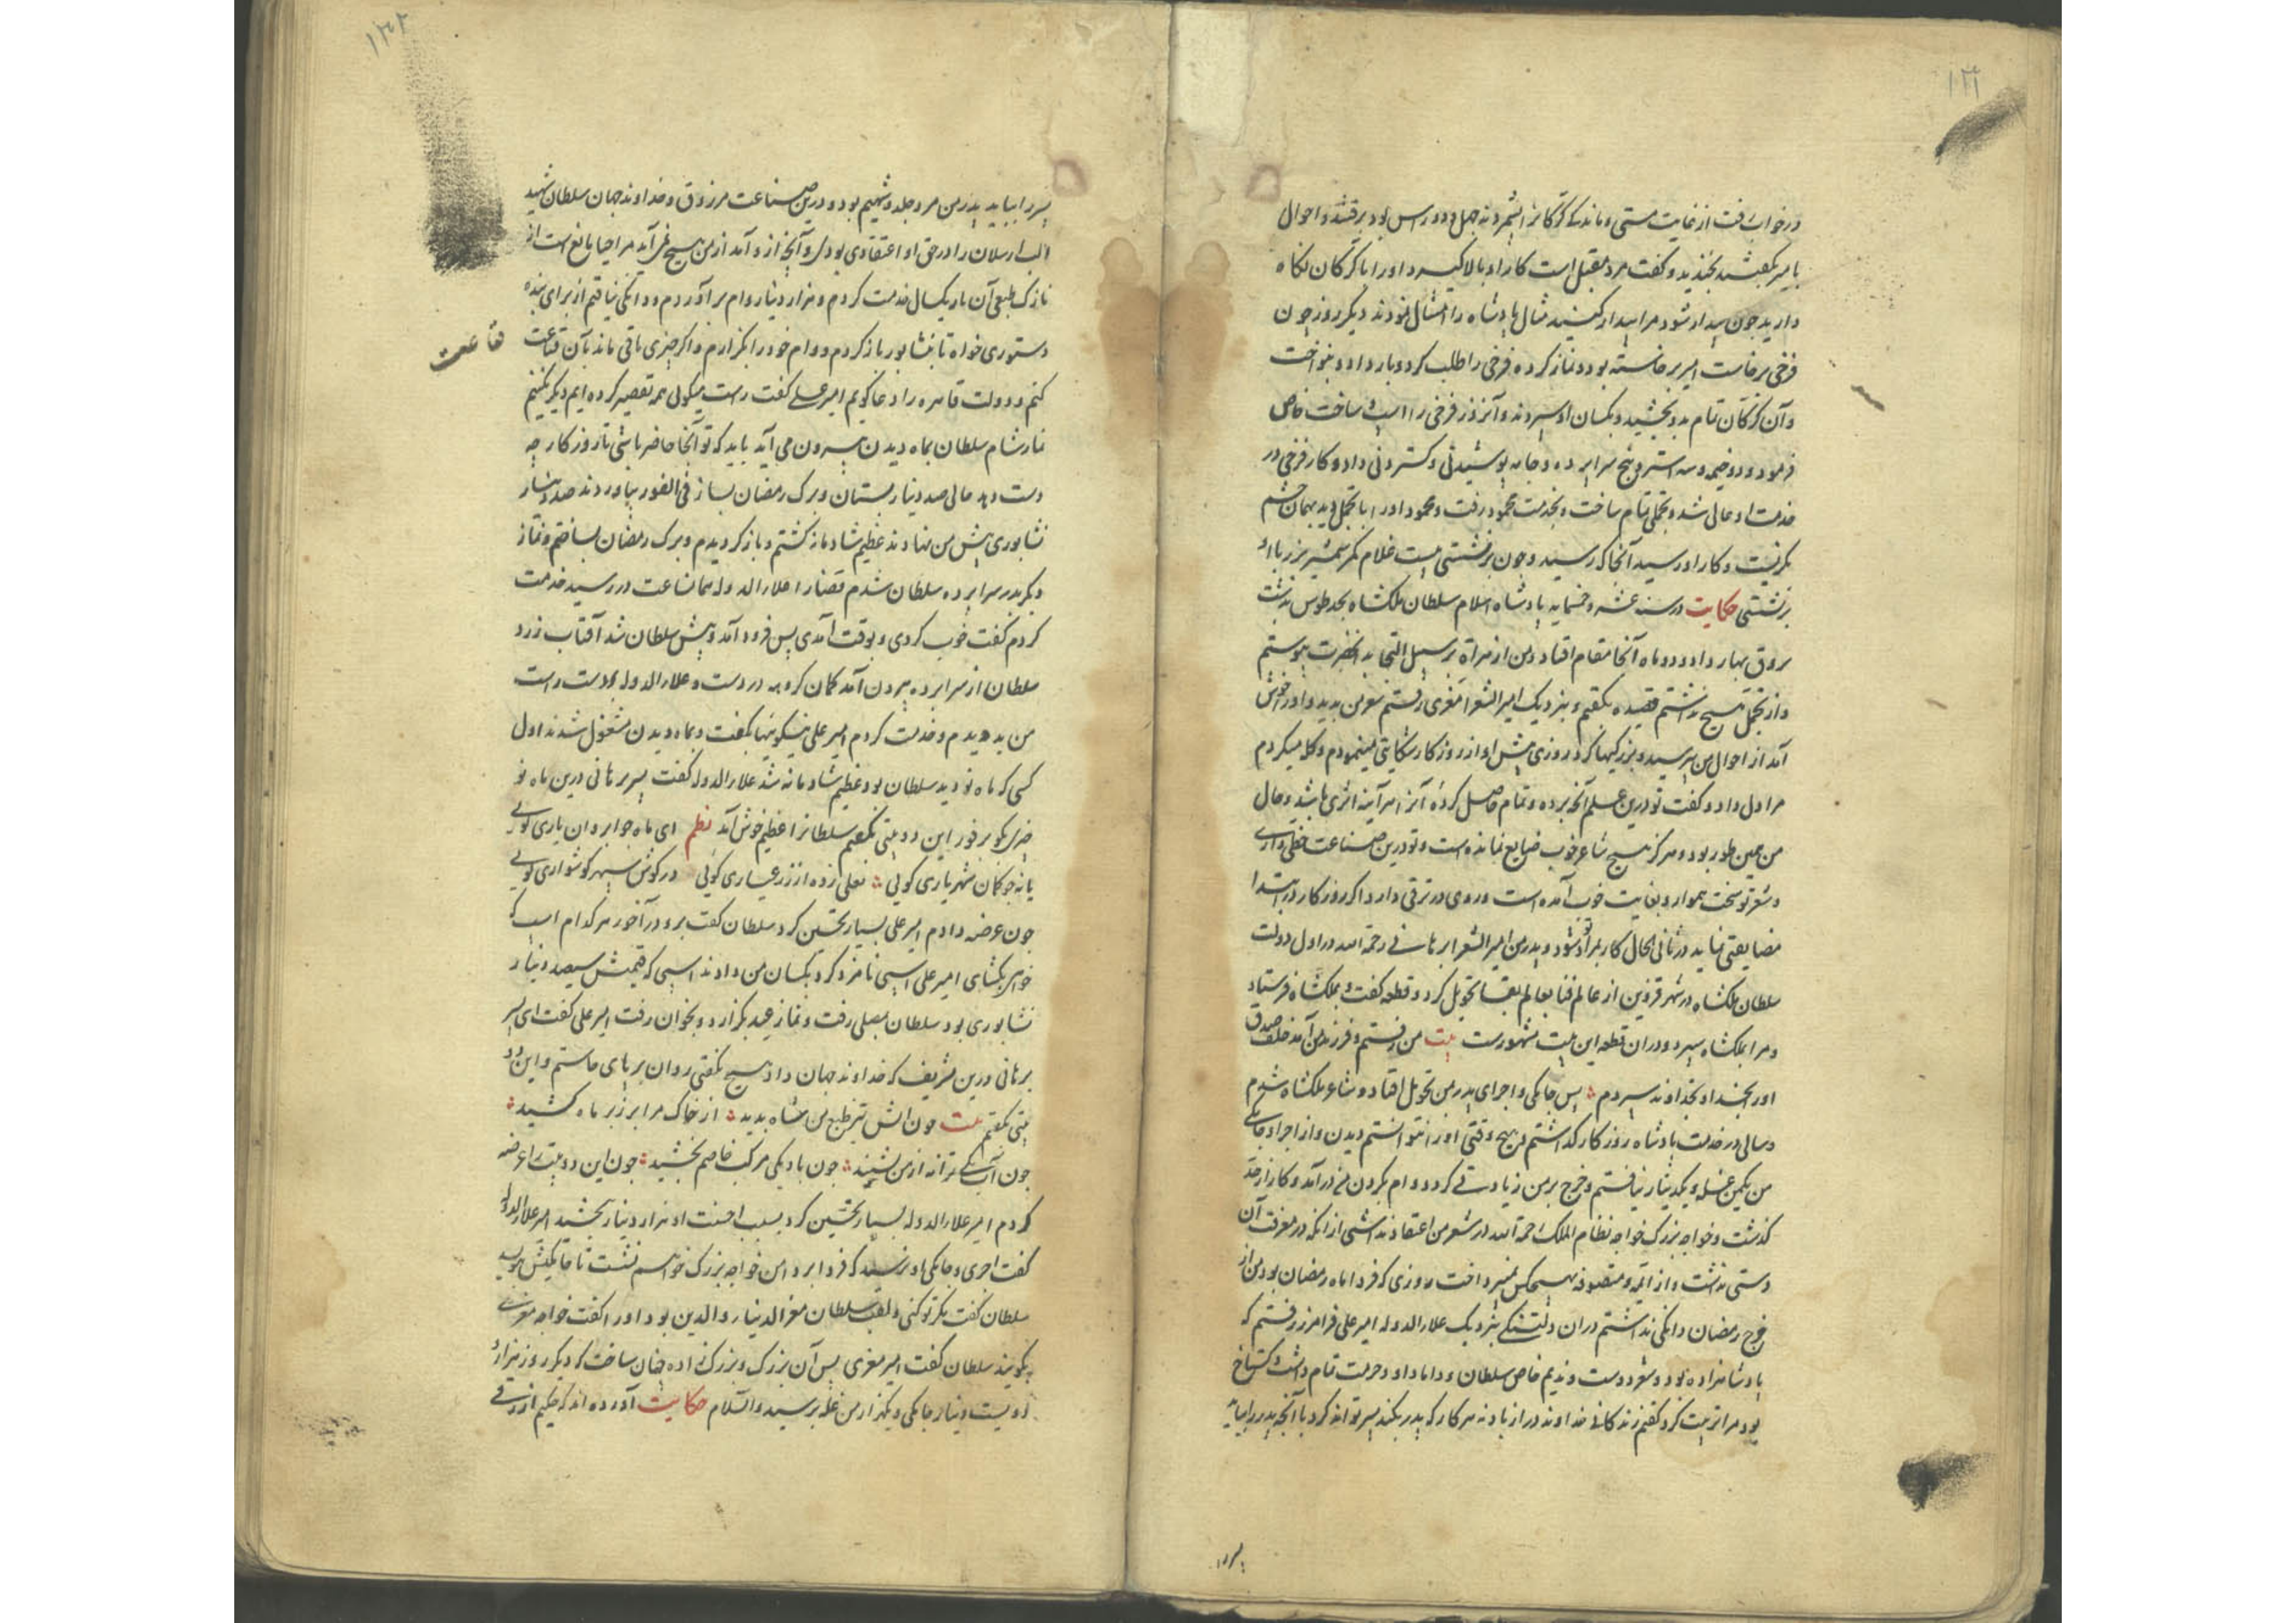 ۱۳۱
در خواب رفت از غایت مستی و ماندکی کرکانرا بشمردند چهل و دو راس بود برفتند و احوال
با میر بگفتند بخندید و گفت مرد مقبل است کار او بالا گیرد او را با کرکان نکاه
دارید چون بیدار شود مرا بیدار کنید مثال پادشاه را امتثال نمودند دیکر روز چون
فرخی برخاست امیر برخاسته بود و نماز کرده فرخی را طلب کرد و بار داد و بنواخت
و آن کرکان تمام بدو بخشید و بکسان او سپردند و آنروز فرخی را اسپ ساخت خاص
فرمود و دو خیمه و سه استر و پنج سرابرده و جامه پوشیدنی و کستردنی داد و کار فرخی در
خدمت او عالی شد و تجملی تمام ساخت و بخدمت محمود رفت و محمود او را با تجمل دید بهمان چشم
نکریست و کار او رسید آنجا که رسید و چون برنشستی بیست غلام کمر شمشیر بزر با او
برنشستی حکایت در سنه عشر و خمسمایه پادشاه اسلام سلطان ملکشاه بحد طوس بدشت
بروق بهار داد و دو ماه آنجا مقام افتاد و من از هراة بر سبیل التجا بدانحضرت پیوستم
و از تجمل هیچ نداشتم قصیده بکفتم و بنزدیک امیر الشعرا معزی رفتم شعر من بدید و او را خوش
آمد از احوال من پرسید و بزرکیها کرد روزی پیش او از روزکار شکایتی مینمودم و کله میکردم
مرا دل داد و کفت تو درین علم رنج برده و تمام حاصل کرده آنرا هر آینه اثری باشد و حال
من همین طور بود و هرکز هیچ شاعر خوب ضایع نمانده است و تو درین صناعت حظی داری
و شعر تو سخت هموار و بغایت خوب آمده است و روی در ترقی دارد اکر روزکار در ابتدا
مضایقتی نماید در ثانی الحال کار بمراد تو شود و پدر من امیر الشعرا برهانی رحمة الله در اول دولت
سلطان ملکشاه در شهر قزوین از عالم فنا بعالم بقا تحویل کرد و قطعه کفت و بملکشاه فرستاد
و مرا بملکشاه سپرد و دران قطعه این بیت مشهورست بیت من رفتم و فرزند من آمد خلف صدق
او را بخدا و بخداوند سپردم پس جامکی و اجرای پدر بمن تحویل افتاد و شاعر ملکشاه شدم
و سالی در خدمت پادشاه روزکار کذاشتم و هیچ وقتی او را نتوانستم دیدن و از اجرا و جامکی
من یکمن غله و یکدینار نیافتم و خرج بر من زیادتی کرد و وام بکردن من در آمد و کار از حد
کذشت و خواجه بزرک خواجه نظام الملک رحمة الله در شعر من اعتقاد نداشتی از انکه در معرفت آن
دستی نداشت و از ایمه و متصوفه بهیچکس نمیپرداخت روزی که فردا ماه رمضان بود من از
خرج رمضان دانکی نداشتم دران دلتنکی بنزدیک علاء الدوله امیر علی فرامرز رفتم که
پادشاهزاده بود و شعر دوست و ندیم خاص سلطان و داماد او و حرمت تمام داشت و کستاخ
بود مرا تربیت کرد کفتم زندکانی خداوند دراز باد نه هر کار که پدر بکند پسر تواند کرد یا آنچه پدر را بیاید
پسر را
۱۳۲
پسر را بیاید پدر من مرد جلد و شهیم بود و درین صناعت مرزوق و خداوند جهان سلطان شهید
الب ارسلان را در حق او اعتقادی بود و آنچه از و آمد از من هیچ نمی آید مرا حیا مانع است از
نازک طبعی آن با ریکسال خدمت کردم و هزار دینار وام بر آوردم و دانکی نیافتم از برای بنده
دستوری خواه تا بنشابور باز کردم و وام خود را بکزارم و اکر چیزی باقی ماند بآن قناعت
قناعت
کنم و دولت قاهره را دعا کویم امیر علی کفت راست میکوئی همه تقصیر کرده ایم دیکر نکنیم
نماز شام سلطان بماه دیدن بیرون می آید باید که تو آنجا حاضر باشی تا روزکار چه
دست دهد حالی صد دینار بستان و برک رمضان بساز فی الفور بیاوردند صد دینار
نشابوری پیش من نهادند عظیم شادمانه کشتم و باز کردیدم و برک رمضان بساختم و نماز
دیکر بدر سرابرده سلطان شدم قضا را علاء الدوله همان ساعت در رسید خدمت
کردم کفت خوب کردی و بوقت آمدی پس فرود آمد و پیش سلطان شد آفتاب زرد
سلطان از سرابرده بیرون آمد کمان کروهه در دست و علاء الدوله بر دست راست
من بدویدم و خدمت کردم امیر علی نیکوئیها بکفت و بماه دیدن مشغول شدند اول
کسی که ماه نو دید سلطان بود عظیم شادمانه شد علاء الدوله کفت پسر برهانی درین ماه نو
چیزی بکو بر فور این دو بیتی بکفتم سلطانرا عظیم خوش آمد نظم ای ماه چو ابروان یاری کویی
یا نه چو کمان شهریاری کویی نعلی زده از زر عیاری کوئی در کوش سپهر کوشواری کویی
چون عرضه دادم امیر علی بسیار تحسین کرد سلطان کفت برو در آخور هر کدام اسپ که
خواهی بکشای امیر علی اسبی نامزد کرد بکسان من دادند اسبی که قیمتش سیصد دینار
نشابوری بود سلطان بمصلی رفت و نماز عید بکزارد و بخوان رفت امیر علی کفت ای پسر
برهانی درین تشریف که خداوند جهان داد هیچ نکفتی روان بر پای خاستم و این دو
بیتی بکفتم بیت چون اتش تیز طبع من شاه بدید از خاک مرا بر زبر ماه کشید
چون آب یکی ترانه از من بشنید چون باد یکی مرکب خاصم بخشید چون این دو بیت را عرضه
کردم امیر علاء الدوله بسیار تحسین کرد بسبب احسنت او هزار دینار بخشید امیر علاء الدوله
کفت اجری و جامکی او نرسید که فردا بر دامن خواجه بزرک خواهم نشست تا جامکیش بنویسد
سلطان کفت مکر تو کنی و لقب سلطان معز الدنیا و الدین بود او را کفت خواجه معزی
بکویید سلطان کفت امیر معزی پس آن بزرک و بزرک زاده چنان ساخت که دیکر روز هزار
دویست دینار جامکی و یکهزار من غله برسید و السلام حکایت آورده اند که حکیم ازرقی